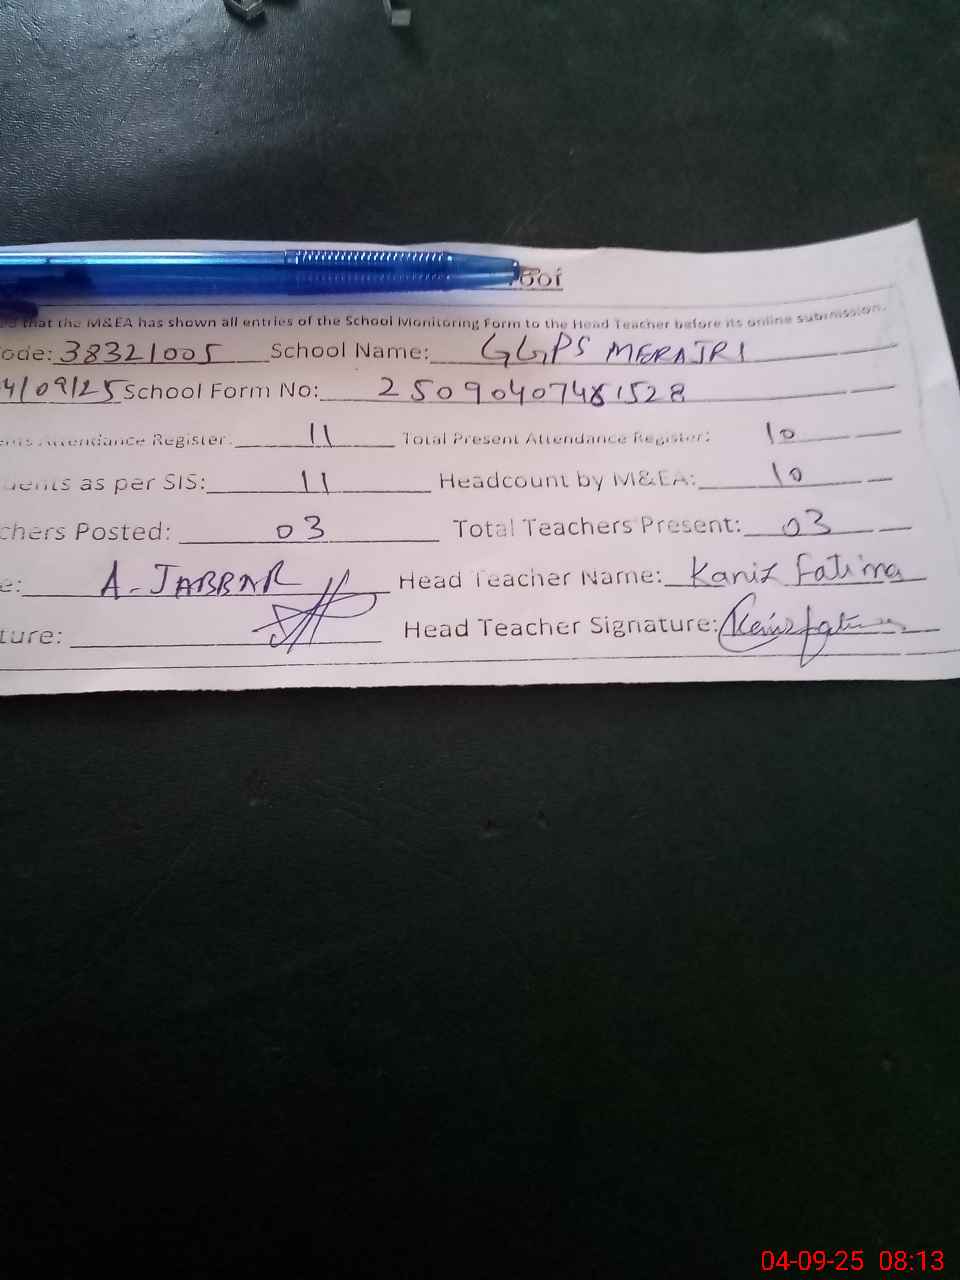 that the M&EA has shown all entries of the School Monitoring Form to the Head Teacher before its online submission.
ode: 38321005 School Name: GGPS MERAJRI
4/09/25 School Form No: 25090407481528
Attendance Register: 11 Total Present Attendance Register: 10
dents as per SIS: 11 Headcount by M&EA: 10
chers Posted: 03 Total Teachers Present: 03
e: A-JABBAR Head Teacher Name: Kaniz Fatima
ture: Head Teacher Signature: Kaniz fatima
04-09-25 08:13